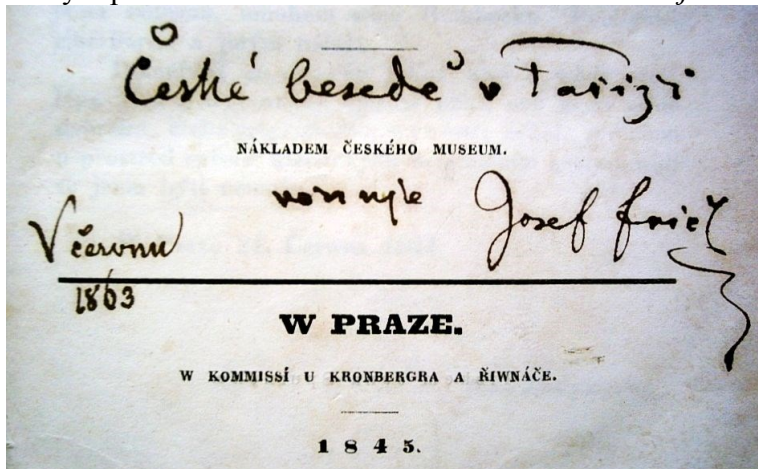 České besedě v Paříži
NÁKLADEM ČESKÉHO MUSEUM.
věnuje Josef Frič
V červnu
1863
W PRAZE.
W KOMMISSÍ U KRONBERGRA A ŘIWNÁČE.
1845.